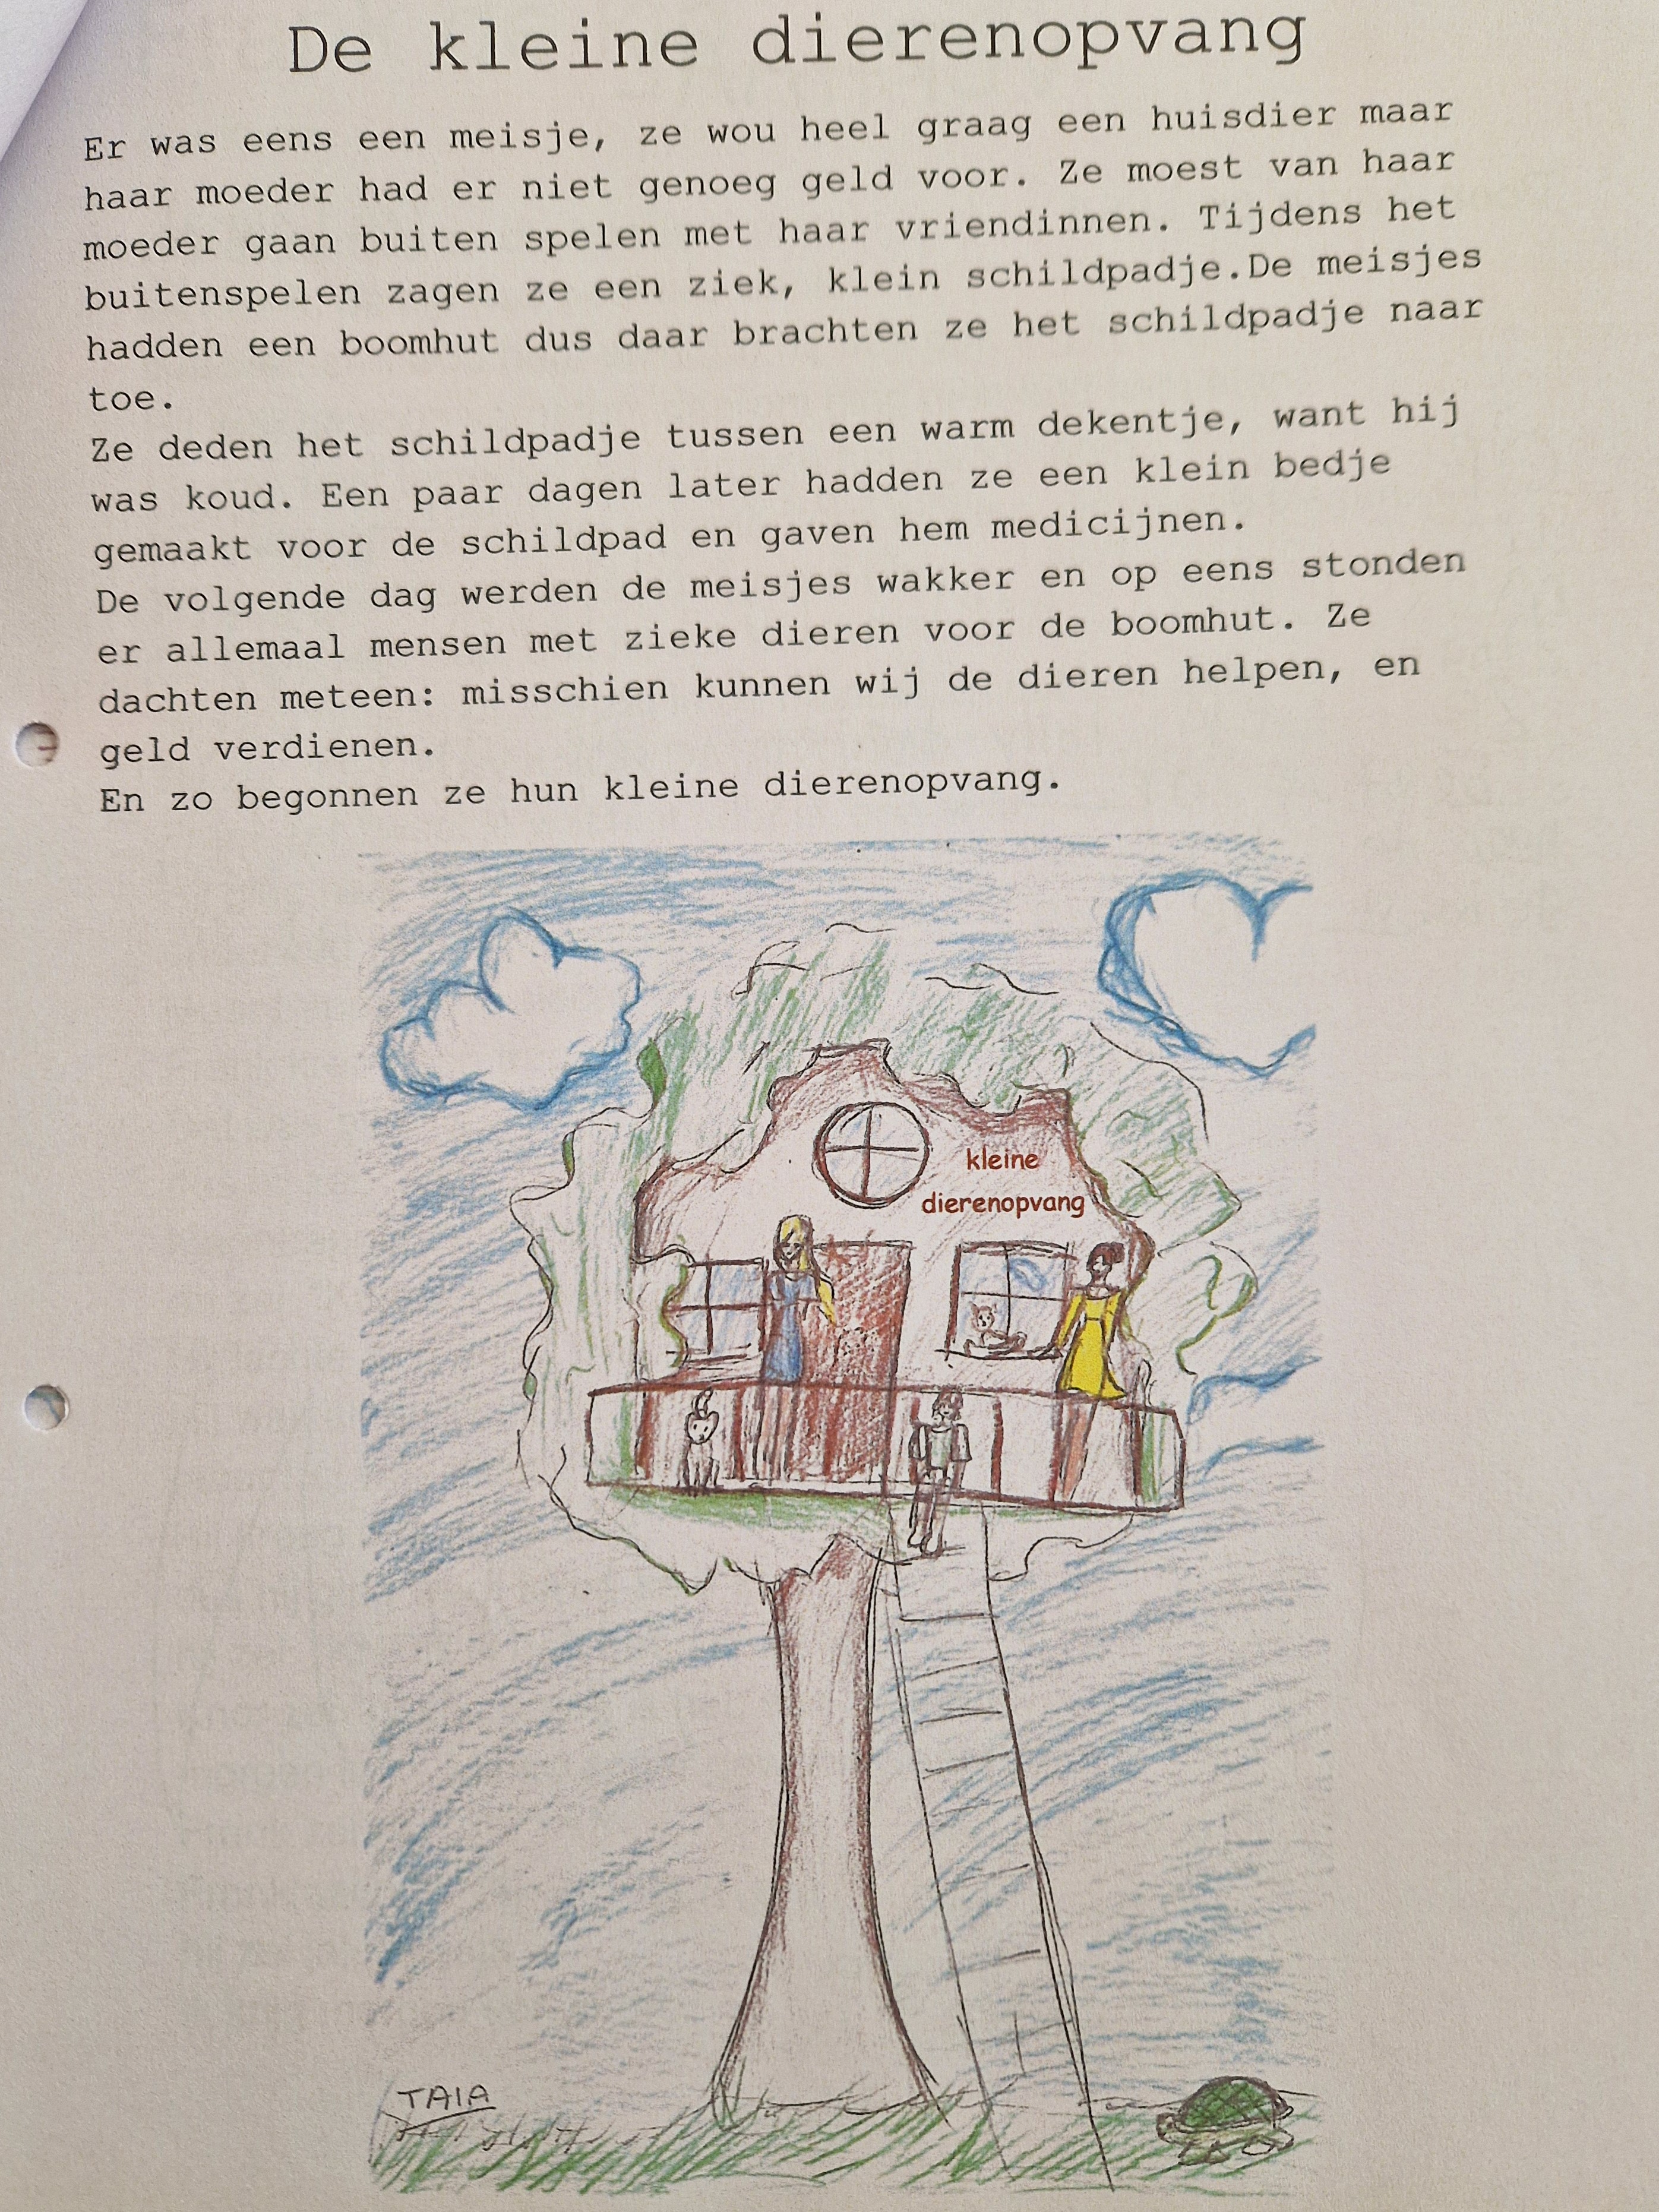 De kleine dierenopvang
Er was eens een meisje, ze wou heel graag een huisdier maar
haar moeder had er niet genoeg geld voor. Ze moest van haar
moeder gaan buiten spelen met haar vriendinnen. Tijdens het
buitenspelen zagen ze een ziek, klein schildpadje.De meisjes
hadden een boomhut dus daar brachten ze het schildpadje naar
toe.
Ze deden het schildpadje tussen een warm dekentje, want hij
was koud. Een paar dagen later hadden ze een klein bedje
gemaakt voor de schildpad en gaven hem medicijnen.
De volgende dag werden de meisjes wakker en op eens stonden
er allemaal mensen met zieke dieren voor de boomhut. Ze
dachten meteen: misschien kunnen wij de dieren helpen, en
geld verdienen.
En zo begonnen ze hun kleine dierenopvang.
kleine
dierenopvang
TAIA